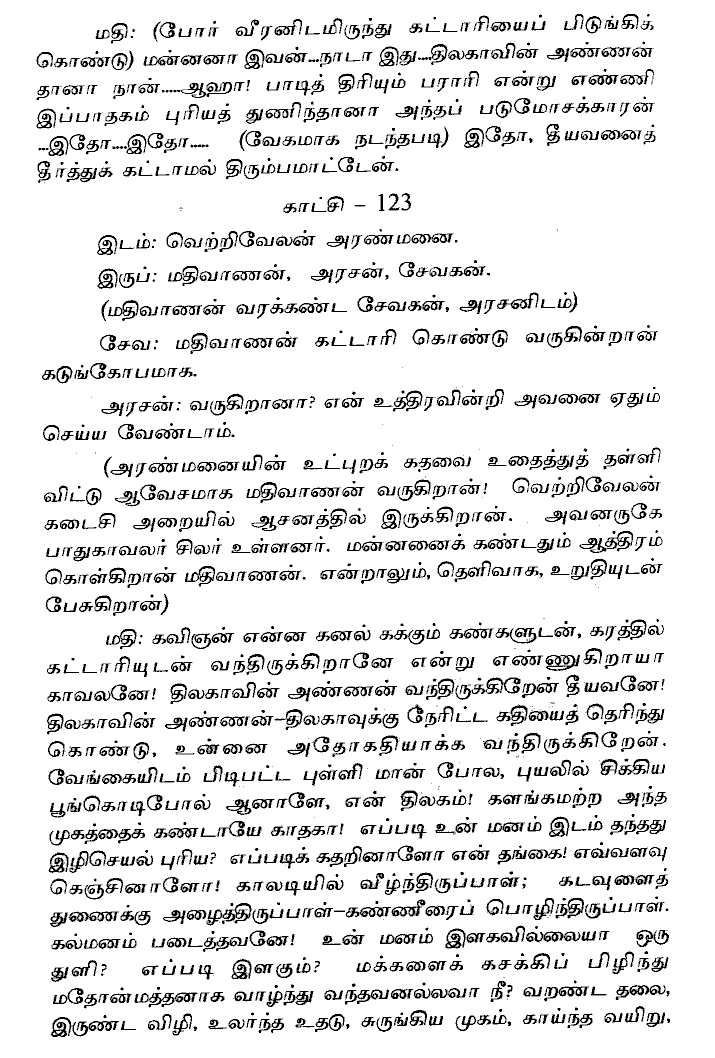 மதி: (போர் வீரனிடமிருந்து கட்டாரியைப் பிடுங்கிக்
கொண்டு) மன்னனா இவன்...நாடா இது....திலகாவின் அண்ணன்
தானா நான்.....ஆஹா! பாடித் திரியும் பராரி என்று எண்ணி
இப்பாதகம் புரியத் துணிந்தானா அந்தப் படுமோசக்காரன்
...இதோ....இதோ..... (வேகமாக நடந்தபடி) இதோ, தீயவனைத்
தீர்த்துக் கட்டாமல் திரும்பமாட்டேன்.
காட்சி – 123
இடம்: வெற்றிவேலன் அரண்மனை.
இருப்: மதிவாணன், அரசன், சேவகன்.
(மதிவாணன் வரக்கண்ட சேவகன், அரசனிடம்)
சேவ: மதிவாணன் கட்டாரி கொண்டு வருகின்றான்
கடுங்கோபமாக.
அரசன்: வருகிறானா? என் உத்திரவின்றி அவனை ஏதும்
செய்ய வேண்டாம்.
(அரண்மனையின் உட்புறக் கதவை உதைத்துத் தள்ளி
விட்டு ஆவேசமாக மதிவாணன் வருகிறான்! வெற்றிவேலன்
கடைசி அறையில் ஆசனத்தில் இருக்கிறான். அவனருகே
பாதுகாவலர் சிலர் உள்ளனர். மன்னனைக் கண்டதும் ஆத்திரம்
கொள்கிறான் மதிவாணன். என்றாலும், தெளிவாக, உறுதியுடன்
பேசுகிறான்)
மதி: கவிஞன் என்ன கனல் கக்கும் கண்களுடன், கரத்தில்
கட்டாரியுடன் வந்திருக்கிறானே என்று எண்ணுகிறாயா
காவலனே! திலகாவின் அண்ணன் வந்திருக்கிறேன் தீயவனே!
திலகாவின் அண்ணன்–திலகாவுக்கு நேரிட்ட கதியைத் தெரிந்து
கொண்டு, உன்னை அதோகதியாக்க வந்திருக்கிறேன்.
வேங்கையிடம் பிடிபட்ட புள்ளி மான் போல, புயலில் சிக்கிய
பூங்கொடிபோல் ஆனாளே, என் திலகம்! களங்கமற்ற அந்த
முகத்தைக் கண்டாயே காதகா! எப்படி உன் மனம் இடம் தந்தது
இழிசெயல் புரிய? எப்படிக் கதறினாளோ என் தங்கை! எவ்வளவு
கெஞ்சினாளோ! காலடியில் வீழ்ந்திருப்பாள்; கடவுளைத்
துணைக்கு அழைத்திருப்பாள்–கண்ணீரைப் பொழிந்திருப்பாள்.
கல்மனம் படைத்தவனே! உன் மனம் இளகவில்லையா ஒரு
துளி? எப்படி இளகும்? மக்களைக் கசக்கிப் பிழிந்து
மதோன்மத்தனாக வாழ்ந்து வந்தவனல்லவா நீ? வறண்ட தலை,
இருண்ட விழி, உலர்ந்த உதடு, சுருங்கிய முகம், காய்ந்த வயிறு,